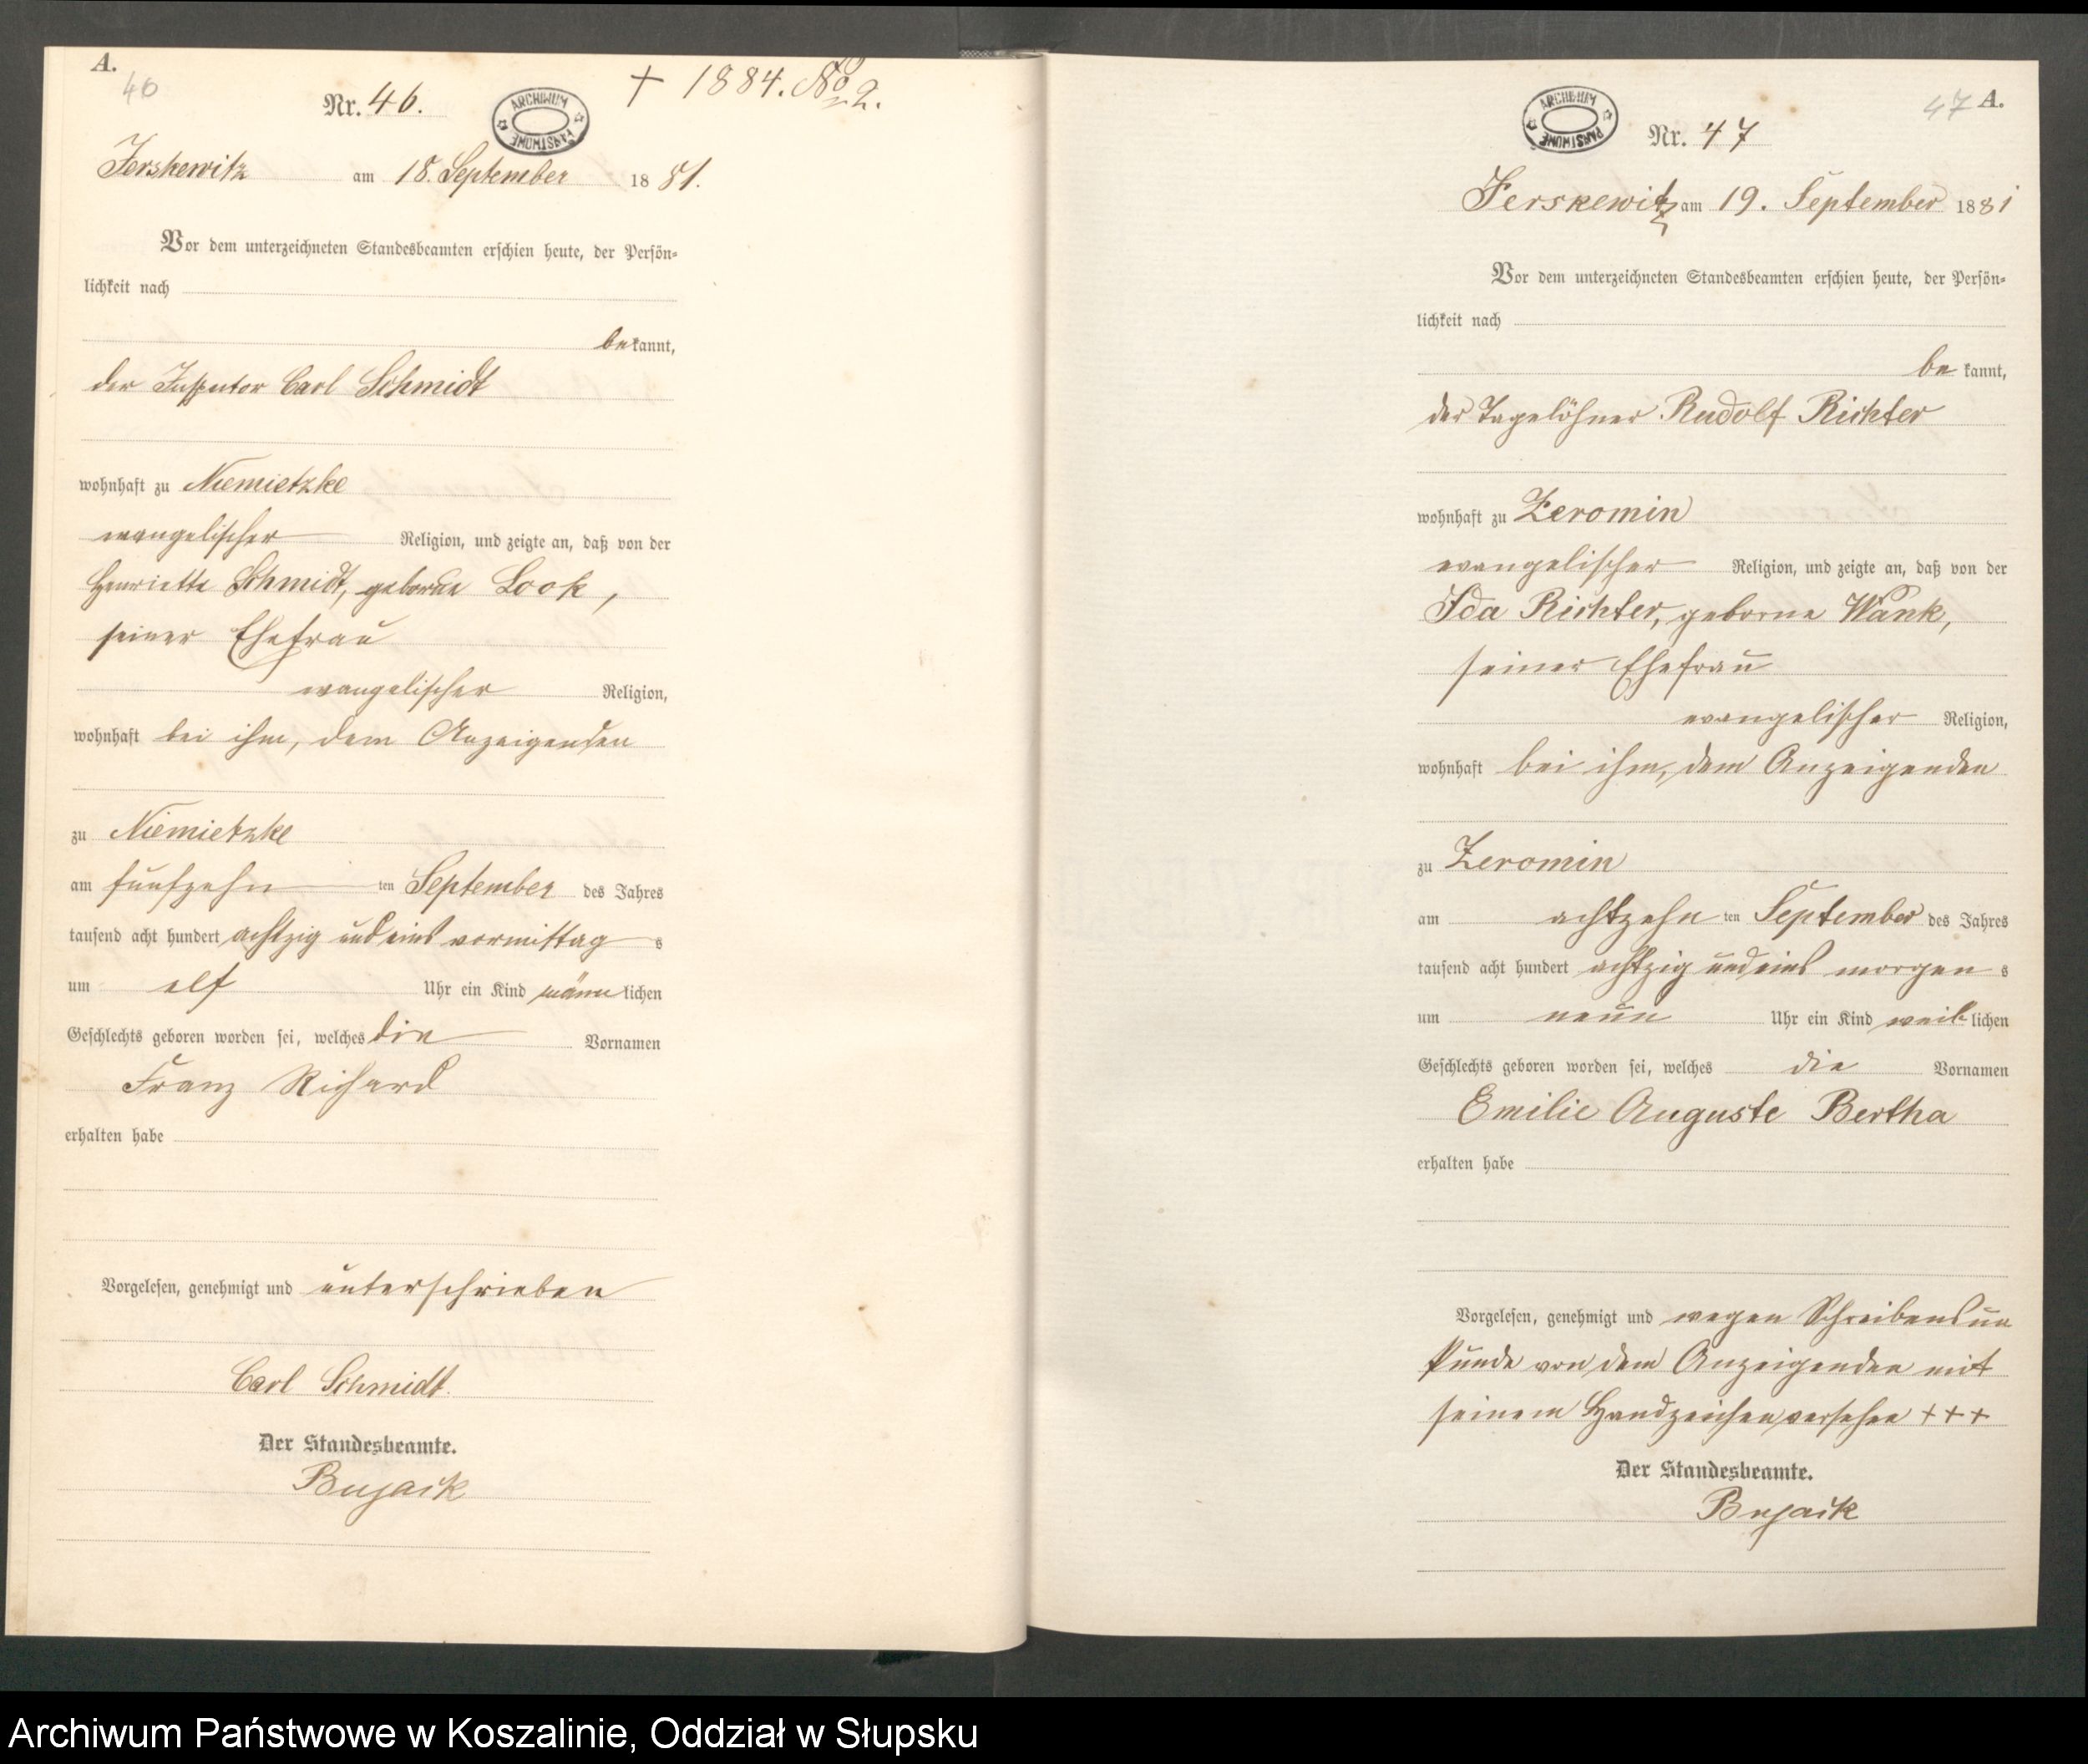 A.
46
Nr. 46.
ARCHIWUM PAŃSTWOWE
+ 1884. No 2.
Jerskewitz am 18. September 1881.
Vor dem unterzeichneten Standesbeamten erschien heute, der Persön-
lichkeit nach
bekannt,
der Inspector Carl Schmidt
wohnhaft zu Niemietzke
evangelischer Religion, und zeigte an, daß von der
Henriette Schmidt, geborne Look,
seiner Ehefrau
evangelischer Religion,
wohnhaft bei ihm, dem Anzeigenden
zu Niemietzke
am fünfzehn ten September des Jahres
tausend acht hundert achtzig und eins vormittag s
um elf Uhr ein Kind männlichen
Geschlechts geboren worden sei, welches die Vornamen
Franz Richard
erhalten habe
Vorgelesen, genehmigt und unterschrieben
Carl Schmidt.
Der Standesbeamte.
Bujack
47 A.
ARCHIWUM PAŃSTWOWE
Nr. 47
Jerskewitz am 19. September 1881
Vor dem unterzeichneten Standesbeamten erschien heute, der Persön-
lichkeit nach
bekannt,
der Tagelöhner Rudolf Richter
wohnhaft zu Zeromin
evangelischer Religion, und zeigte an, daß von der
Ida Richter, geborne Wank,
seiner Ehefrau
evangelischer Religion,
wohnhaft bei ihm, dem Anzeigenden
zu Zeromin
am achtzehn ten September des Jahres
tausend acht hundert achtzig und eins morgen s
um neun Uhr ein Kind weiblichen
Geschlechts geboren worden sei, welches die Vornamen
Emilie Auguste Bertha
erhalten habe
Vorgelesen, genehmigt und wegen Schreibensun
kunde von dem Anzeigenden mit
seinem Handzeichen versehen +++
Der Standesbeamte.
Bujack
Archiwum Państwowe w Koszalinie, Oddział w Słupsku